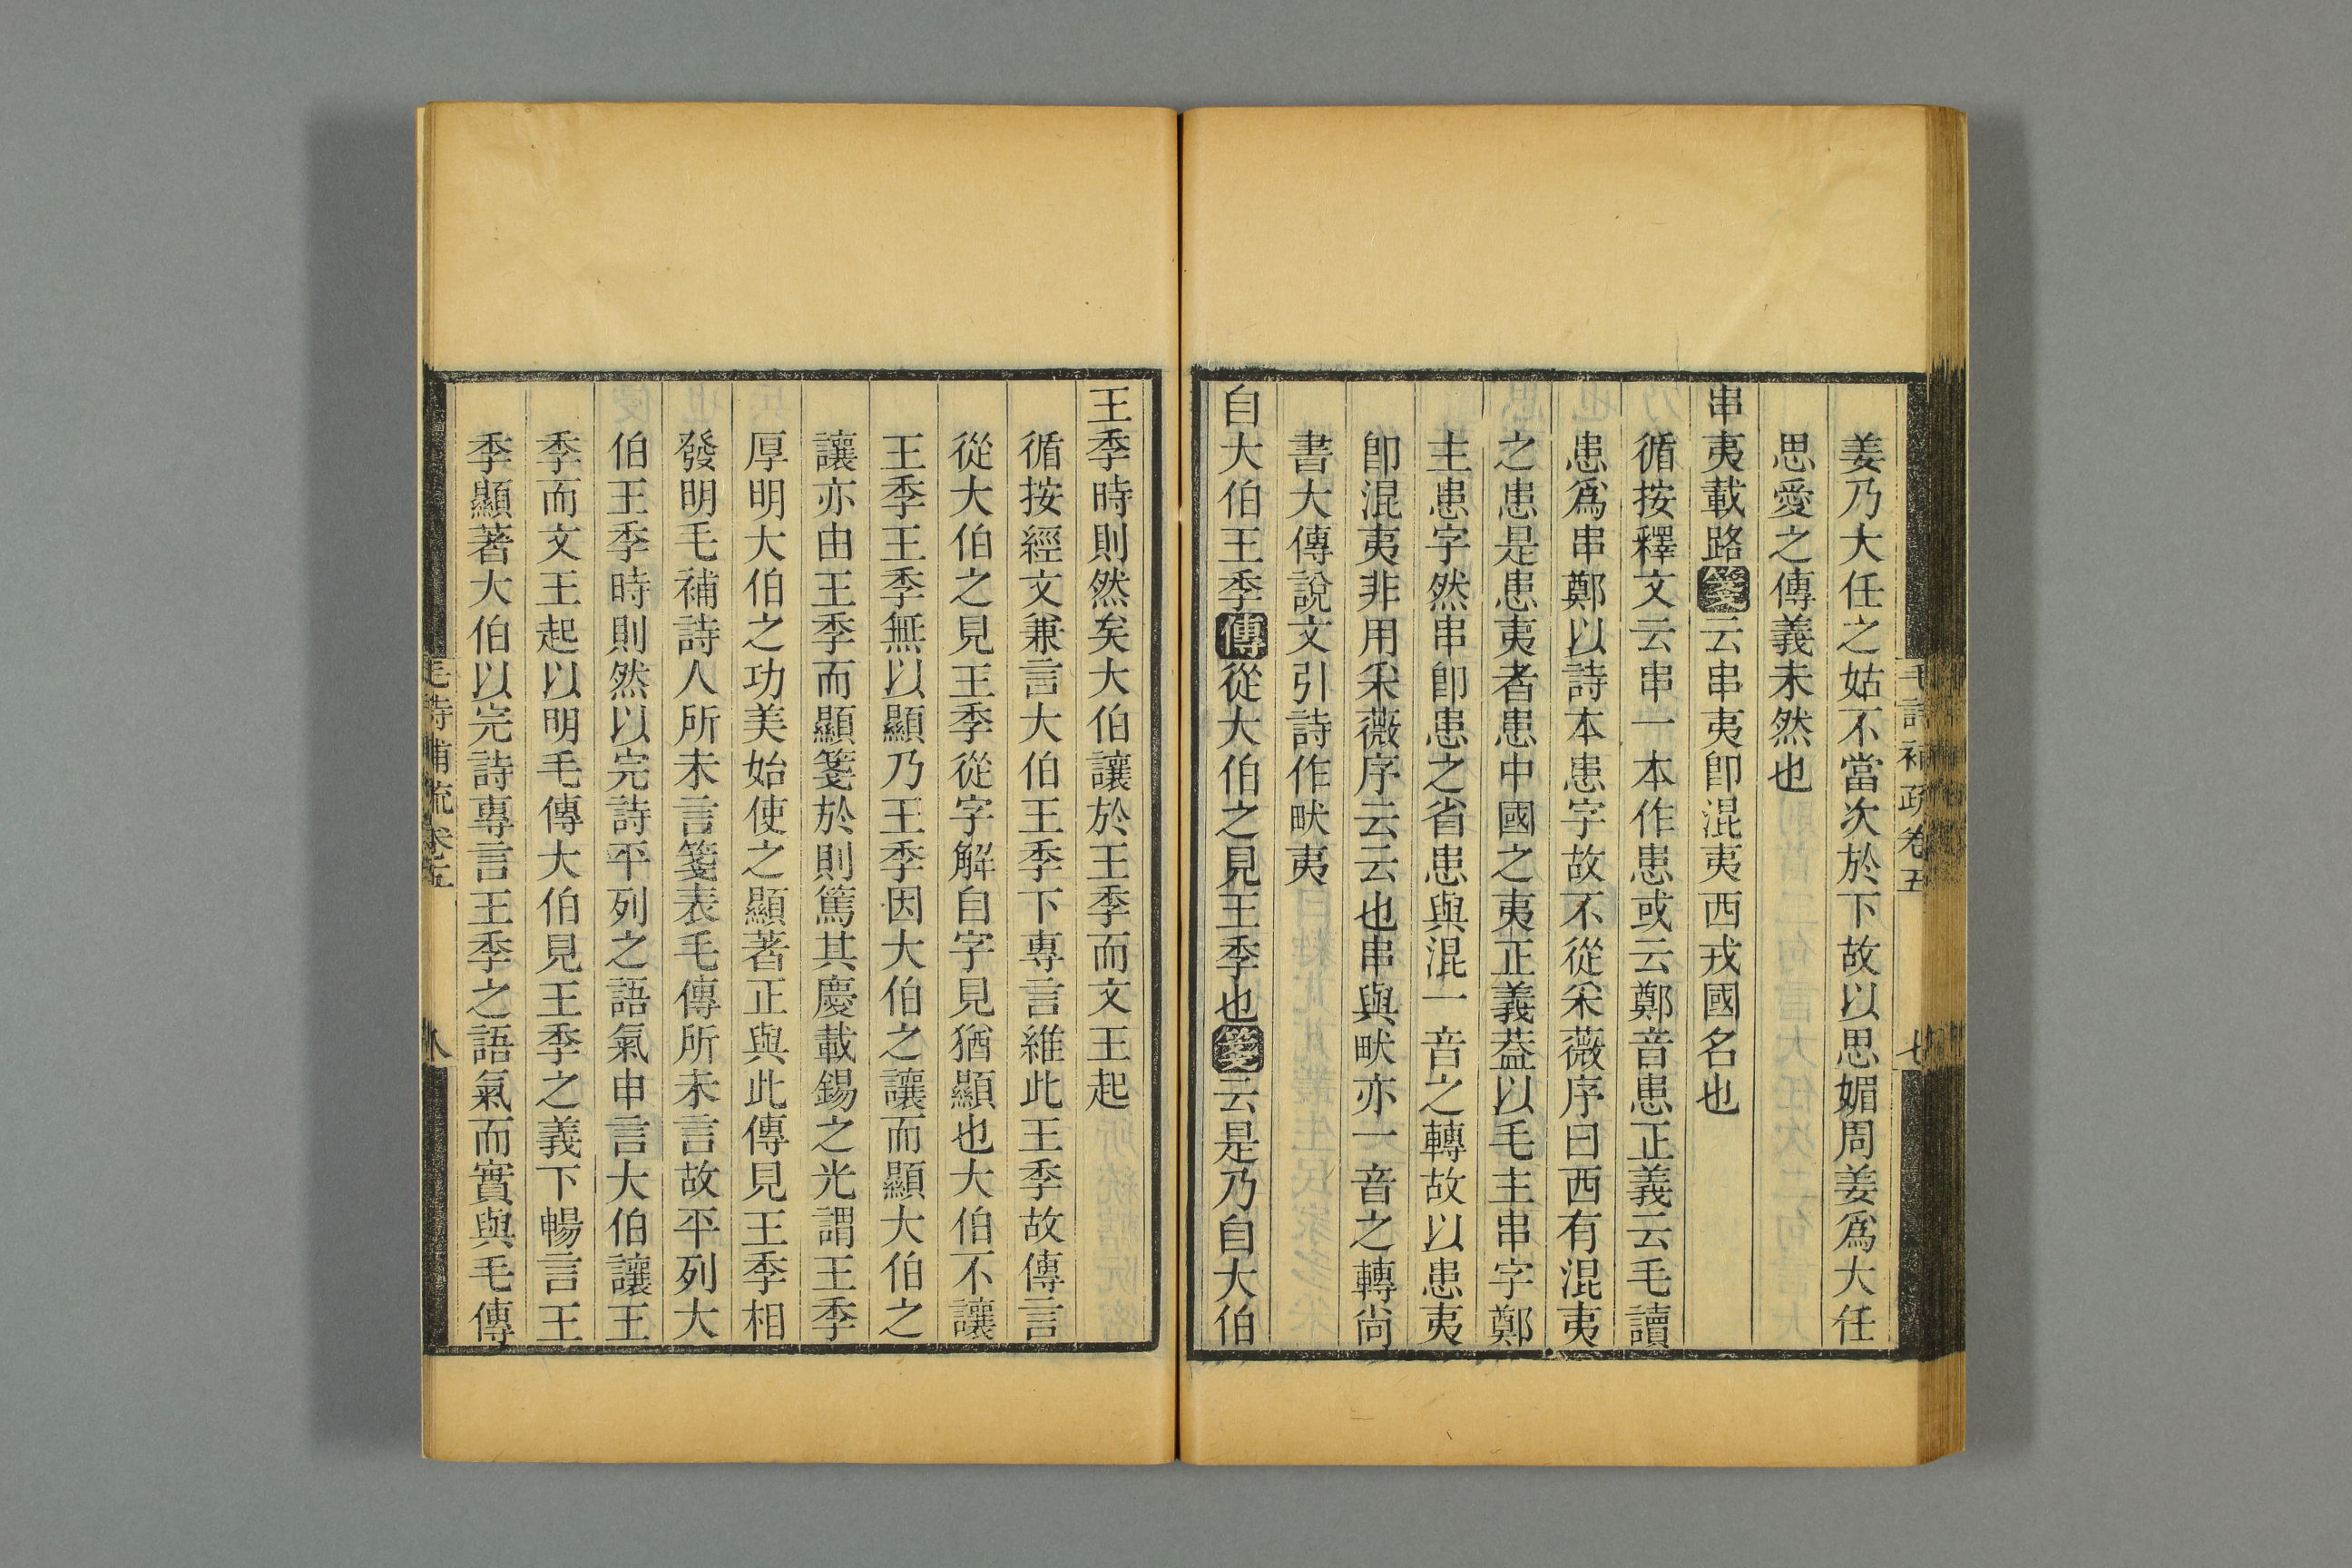 毛詩補疏卷五
七
姜乃大任之姑不當次於下故以思媚周姜爲大任
思愛之傳義未然也
串夷載路箋云串夷卽混夷西戎國名也
循按釋文云串一本作患或云鄭音患正義云毛讀
患爲串鄭以詩本患字故不從采薇序曰西有混夷
之患是患夷者患中國之夷正義葢以毛主串字鄭
主患字然串卽患之省患與混一音之轉故以患夷
卽混夷非用采薇序云云也串與畎亦一音之轉尙
書大傳說文引詩作畎夷
自大伯王季傳從大伯之見王季也箋云是乃自大伯
王季時則然矣大伯讓於王季而文王起
循按經文兼言大伯王季下專言維此王季故傳言
從大伯之見王季從字解自字見猶顯也大伯不讓
王季王季無以顯乃王季因大伯之讓而顯大伯之
讓亦由王季而顯箋於則篤其慶載錫之光謂王季
厚明大伯之功美始使之顯著正與此傳見王季相
發明毛補詩人所未言箋表毛傳所未言故平列大
伯王季時則然以完詩平列之語氣申言大伯讓王
季而文王起以明毛傳大伯見王季之義下暢言王
季顯著大伯以完詩專言王季之語氣而實與毛傳
毛詩補疏卷五
八